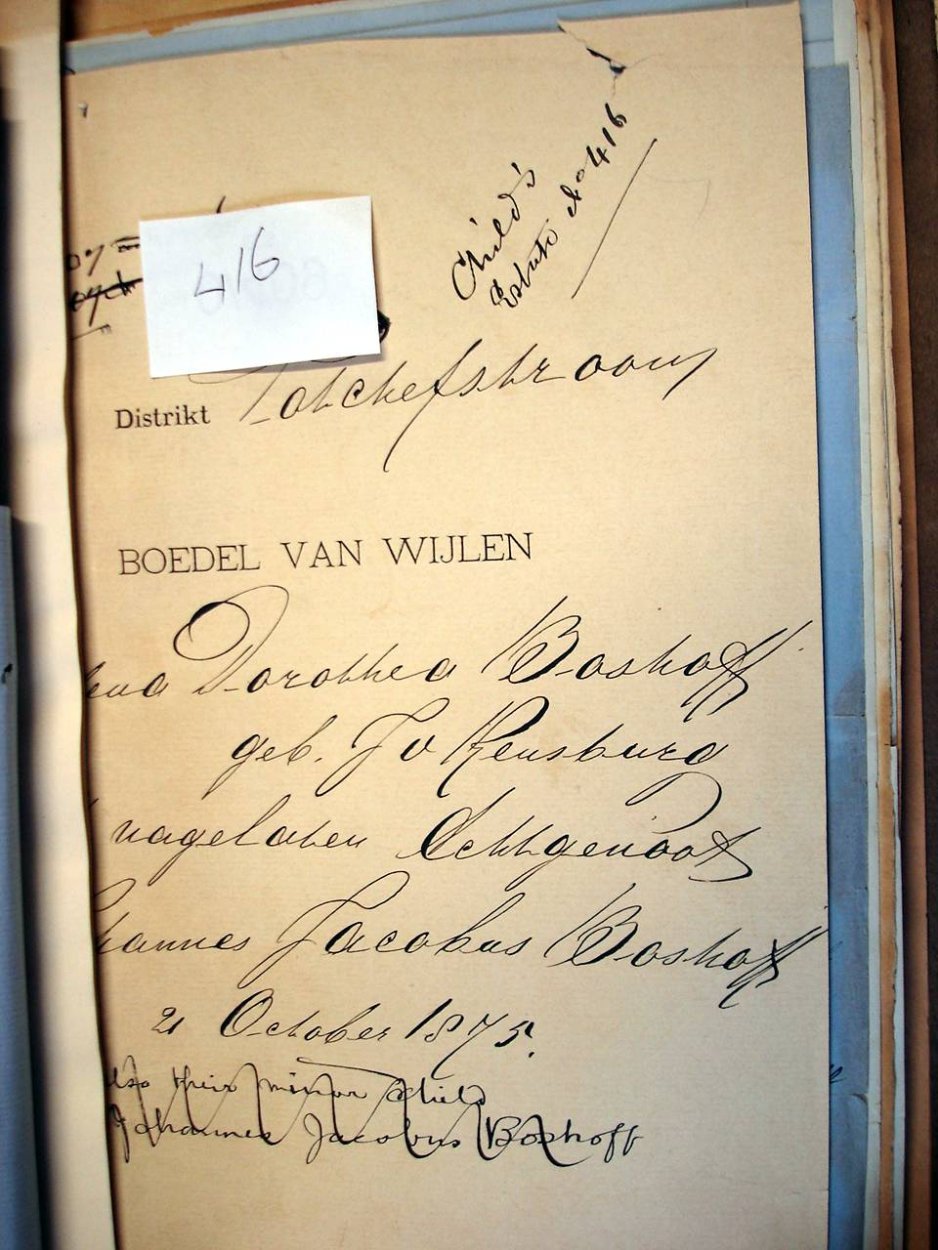 Child's
Estate No 416
416
Distrikt Potchefstroom
BOEDEL VAN WIJLEN
ena Dorothea Boshoff
geb. J v Rensburg
nagelaten Echtgenoot
hannes Jacobus Boshoff
21 October 1875.
lso their minor child
Johannes Jacobus Boshoff